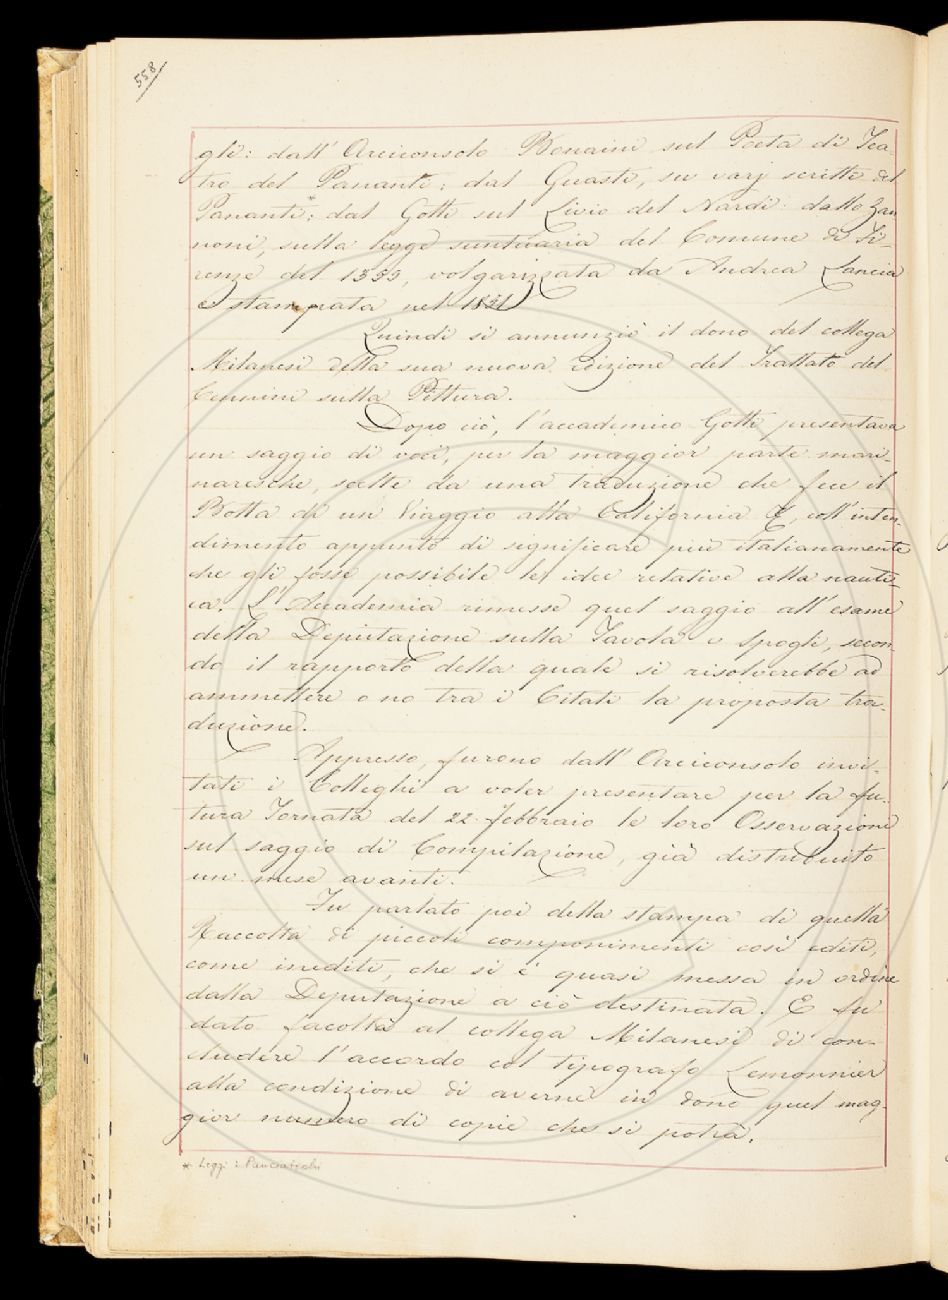 558
gli: dall' Arciconsolo Bonaini sul Poeta di Tea-
tro del Pananti; dal Guasti, su varj scritti del
Pananti*; dal Gotti sul Livio del Nardi: dallo Zan
noni, sulla legge suntuaria del Comune di Fi-
renze del 1355, volgarizzata da Andrea Lancia
e stampata nel 1851
Quindi si annunziò il dono del collega
Milanesi della sua nuova edizione del Trattato del
Cennini sulla Pittura.
Dopo ciò, l'accademico Gotti presentava
un saggio di voci, per la maggior parte mari-
naresche, scelte da una traduzione che fece il
Botta di un Viaggio alla California &, coll'inten-
dimento appunto di significare più italianamente
che gli fosse possibile le idee relative alla nauti-
ca. L'Accademia rimesse quel saggio all'esame
della Deputazione sulla Tavola e Spogli, secon-
do il rapporto della quale si risolverebbe ad
ammettere o no tra i Citati la proposta tra-
duzione.
Appresso, furono dall'Arciconsolo invi-
tati i Colleghi a voler presentare per la fu-
tura Tornata del 22 febbraio le loro Osservazioni
sul saggio di Compilazione, già distribuito
un mese avanti.
Fu parlato poi della stampa di quella
Raccolta di piccoli componimenti così editi,
come inediti, che si è quasi messa in ordine
dalla Deputazione a ciò destinata. E fu
dato facoltà al collega Milanesi di con-
cludere l'accordo col tipografo Lemonnier
alla condizione di averne in dono quel mag-
gior numero di copie che si potrà.
* Leggi: Panciatichi